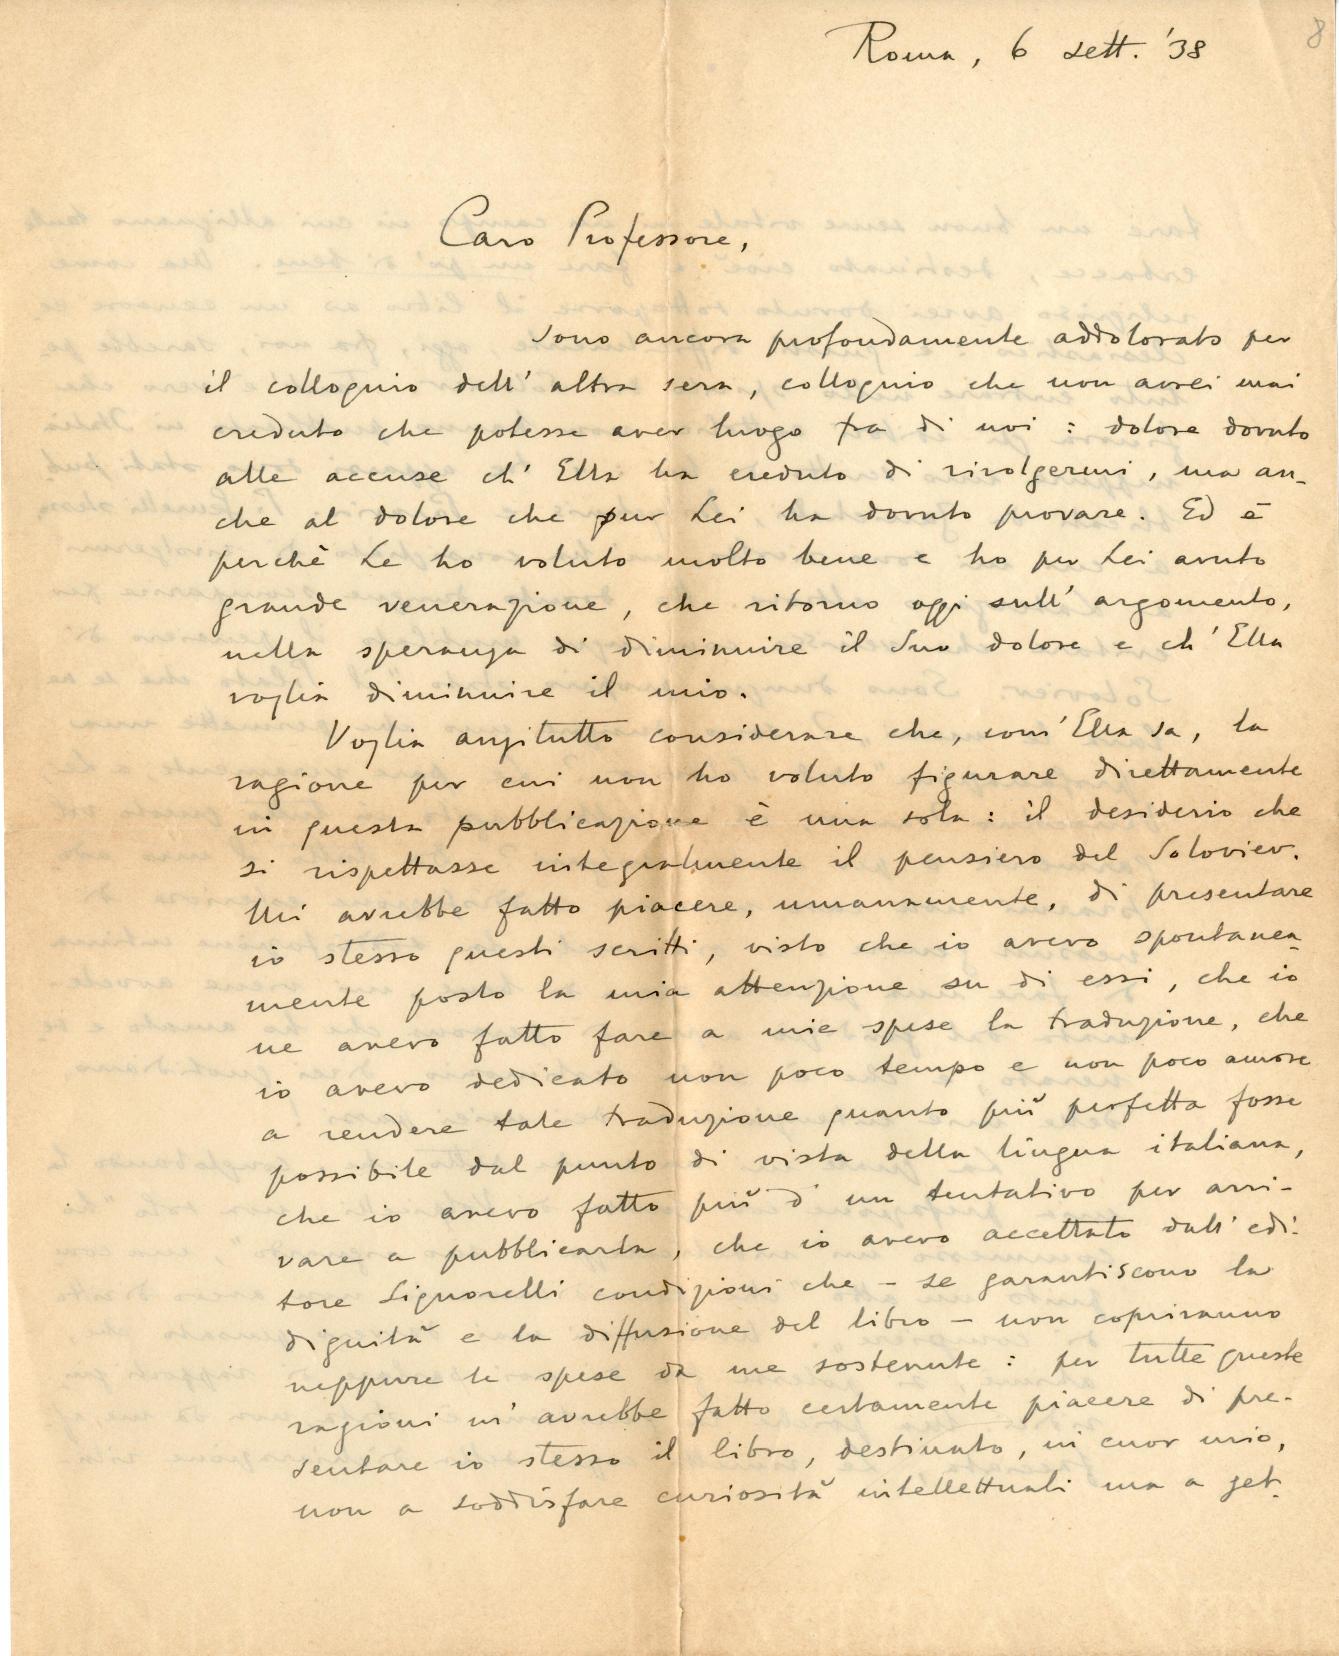 8
Roma, 6 sett. '38
Caro Professore,
sono ancora profondamente addolorato per
il colloquio dell' altra sera, colloquio che non avrei mai
creduto che potesse aver luogo fra di noi : dolore dovuto
alle accuse ch' Ella ha creduto di rivolgermi, ma an-
che al dolore che pur Lei ha dovuto provare. Ed è
perchè Le ho voluto molto bene e ho per Lei avuto
grande venerazione, che ritorno oggi sull' argomento,
nella speranza di diminuire il Suo dolore e ch' Ella
voglia diminuire il mio.
Voglia anzitutto considerare che, com' Ella sa, la
ragione per cui non ho voluto figurare direttamente
in questa pubblicazione è una sola : il desiderio che
si rispettasse integralmente il pensiero del Soloviev.
Mi avrebbe fatto piacere, umanamente, di presentare
io stesso questi scritti, visto che io avevo spontanea-
mente posto la mia attenzione su di essi, che io
ne avevo fatto fare a mie spese la traduzione, che
io avevo dedicato non poco tempo e non poco amore
a rendere tale traduzione quanto più perfetta fosse
possibile dal punto di vista della lingua italiana,
che io avevo fatto più d' un tentativo per arri-
vare a pubblicarla, che io avevo accettato dall' edi-
tore Signorelli condizioni che - se garantiscono la
dignità e la diffusione del libro - non copriranno
neppure le spese da me sostenute : per tutte queste
ragioni m' avrebbe fatto certamente piacere di pre-
sentare io stesso il libro, destinato, in cuor mio,
non a soddisfare curiosità intellettuali ma a get-